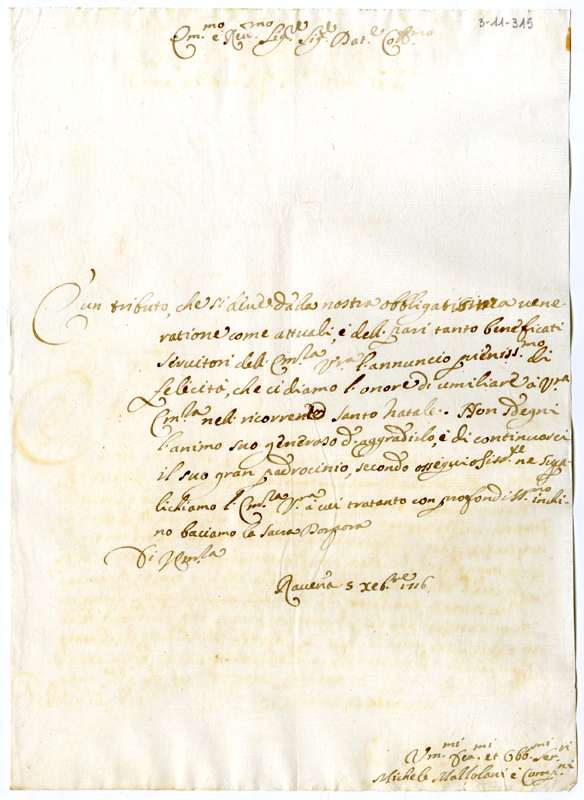 3-11-315
Em.mo e Reu.mo Sig.re Sig.re Pat.e Coll.mo
È un tributo, che si deue dalla nostra obbligatissima uene-
ratione come attuali, è dell pari tanto beneficati
Seruitori dell Em.za V.ra l'annuncio pieniss.mo di
felicità, che ci diamo l'onore di umiliare à V.ra
Em.za nell ricorrente Santo Natale. Non sdegni
l'animo suo generoso d'aggradirlo, è di continuarci
il suo gran Padrocinio, secondo ossequiosiss.te ne supp-
lichiamo l'Em.za V.ra à cui tratanto con profondiss.mo inchi-
no baciamo la Sacra Porpora
Di V.Em.za
Rauena 5 Xeb.re 1716
Vm.mi Deu.mi et Obb.mi Ser.ri
Michele Mattolani è Comp.ni